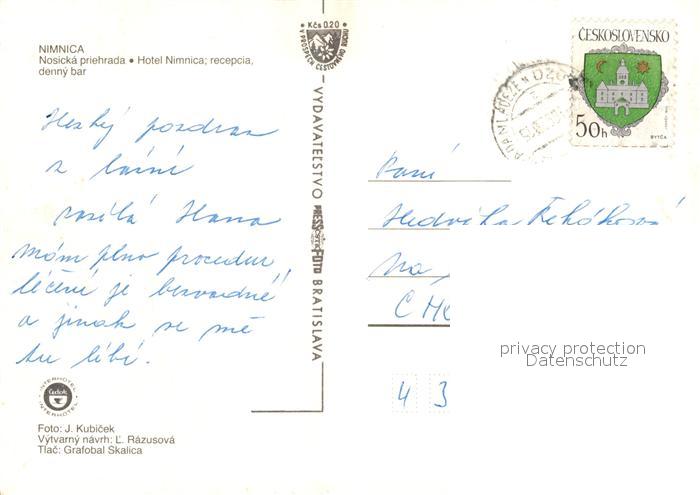 NIMNICA
Nosická priehrada • Hotel Nimnica; recepcia,
denný bar
Kčs 0.20
V PROSPECH CESTOVNÉHO RUCHU
ČESKOSLOVENSKO
50h
BYTČA
Hezký pozdrav
z lázní
zasílá Hana
Mám plno procedur
léčení je bezvadné!
a jinak se mě
tu líbí.
VYDAVATEĽSTVO PRESSFOTO BRATISLAVA
Paní
Hedvika Řeháková
Na
CHO
privacy protection
Datenschutz
4 3
INTERHOTEL
Čedok
INTERHOTEL
Foto: J. Kubiček
Výtvarný návrh: Ľ. Rázusová
Tlač: Grafobal Skalica